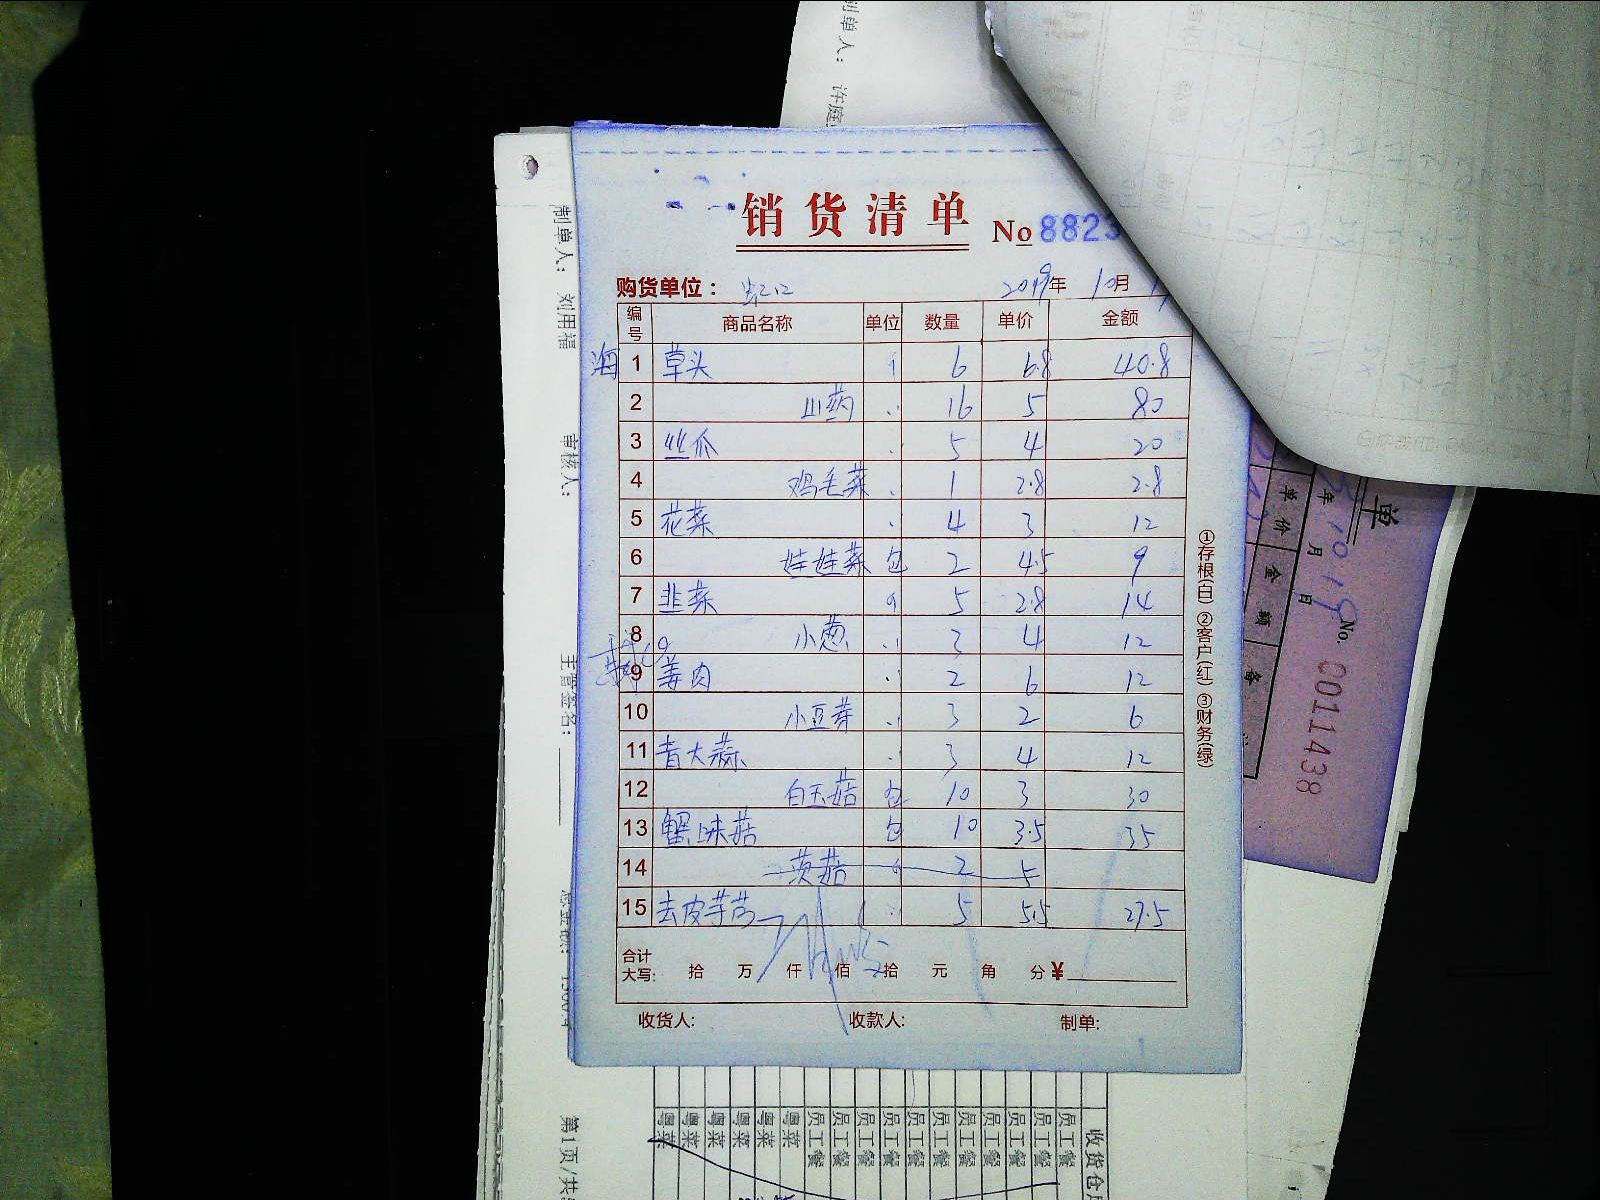 销货清单 No 8823
购货单位： 虹口 2019年 10月
编号 商品名称 单位 数量 单价 金额
海 1 草头 6 6.8 40.8
2 山药 16 5 80
3 丝瓜 5 4 20
4 鸡毛菜 1 2.8 2.8
5 花菜 4 3 12
6 娃娃菜 包 2 4.5 9
7 韭菜 5 2.8 14
8 小葱 3 4 12
9 姜肉 2 6 12
10 小豆芽 3 2 6
11 青大蒜 3 4 12
12 白玉菇 包 10 3 30
13 蟹味菇 包 10 3.5 35
14 茨菇 2 5
15 去皮芋艿 5 5.5 27.5
合计
大写: 拾 万 仟 佰 拾 元 角 分 ¥
收货人: 收款人: 制单:
①存根(白) ②客户(红) ③财务(绿)
制单人： 刘用福
审核人：
主管签名：
第1页/共
制单人： 许庭
单
年 10月 19日
单价 金额 备
No. 0011438
收货仓
员工餐
员工餐
员工餐
员工餐
员工餐
员工餐
员工餐
员工餐
员工餐
员工餐
员工餐
粤菜
粤菜
粤菜
粤菜
粤菜
粤菜